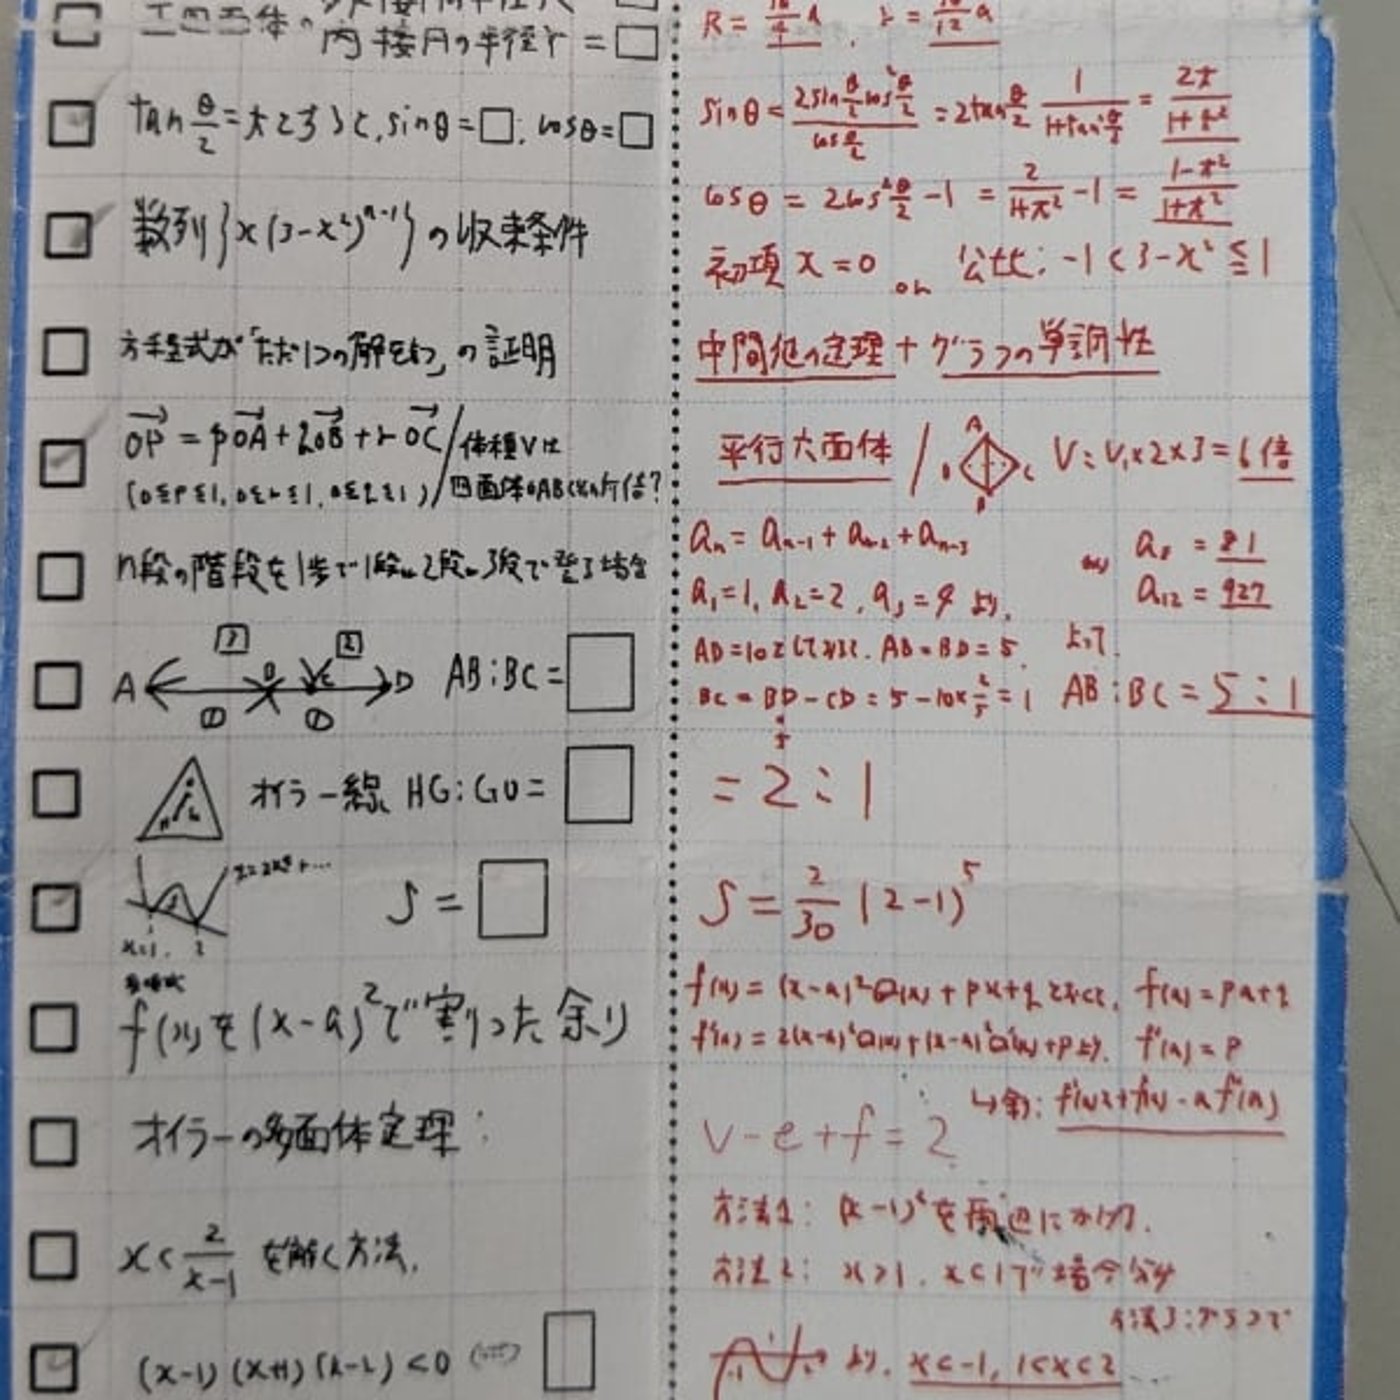 正四面体の
内接円の半径r = □
R = , r =
tan θ/2 = t とすると, sinθ = □, cosθ = □
sinθ = 2sin θ/2 cos² θ/2 / cos θ/2 = 2tan θ/2 1/1+tan² θ/2 = 2t/1+t²
cosθ = 2cos² θ/2 - 1 = 2/1+t² - 1 = 1-t²/1+t²
数列{x(3-x²)ⁿ⁻¹}の収束条件
初項 x = 0 or 公比: -1 < 3-x² ≦ 1
方程式が「ただ1つの解をもつ」の証明
中間値の定理 + グラフの単調性
OP = pOA + qOB + rOC / 体積Vは
(0≦p≦1, 0≦r≦1, 0≦q≦1) / 四面体OABCの何倍?
平行六面体 / A B C V = V₁×2×3 = 6倍
n段の階段を1歩で1段or2段or3段で登る場合
aₙ = aₙ₋₁ + aₙ₋₂ + aₙ₋₃
a₁ = 1, a₂ = 2, a₃ = 4 より,
a₈ = 81
a₁₂ = 927
3 2
A B C D AB:BC = □
① ①
AD = 10として, AB = BD = 5, よって
BC = BD - CD = 5 - 10×2/5 = 1 AB:BC = 5:1
オイラー線 HG:GO = □
= 2:1
x=1, 2
S = □
S = 2/30 (2-1)⁵
多項式
f(x)を(x-a)²で割った余り
f(x) = (x-a)²Q(x) + px+q とおくと, f(a) = pa+q
f'(x) = 2(x-a)Q(x) + (x-a)²Q'(x) + p より, f'(a) = p
↳余り: f'(a)x+f(a) - a f'(a)
オイラーの多面体定理:
v - e + f = 2
x < 2/x-1 を解く方法.
方法1: (x-1)²を両辺にかける.
方法2: x>1, x<1で場合分け
方法3: グラフで
(x-1)(x+1)(x-2) < 0 □
より, x<-1, 1<x<2